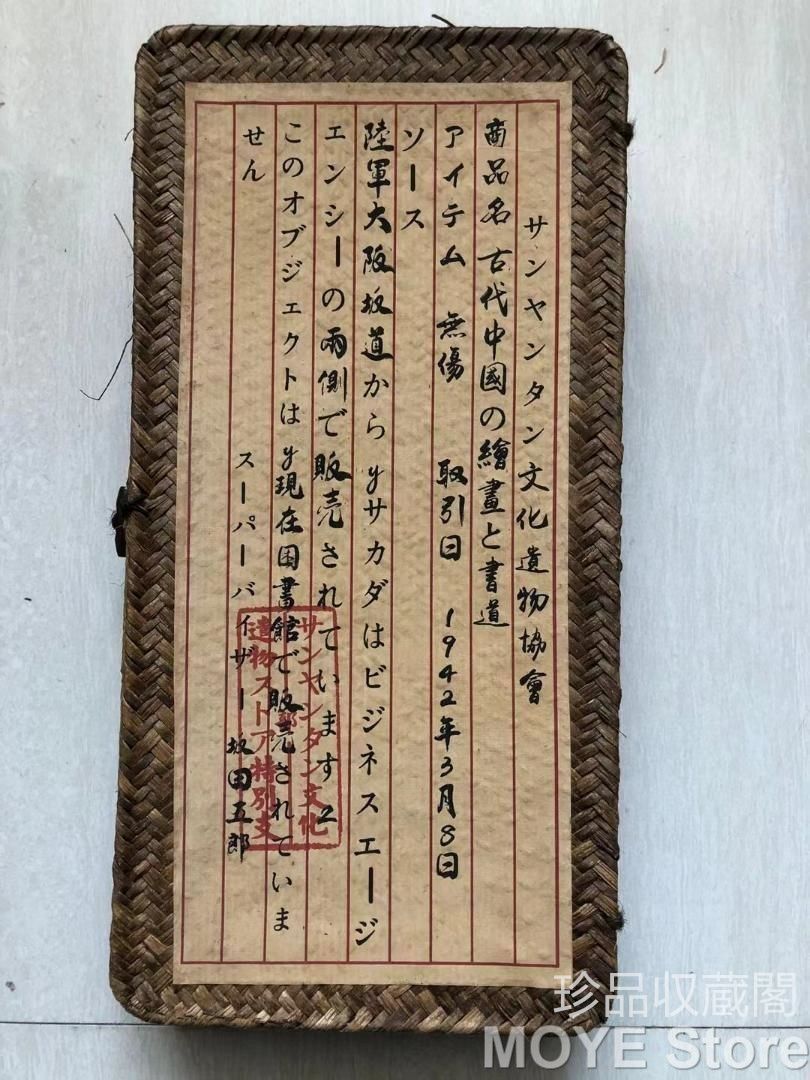 サンヤンタン文化遺物協會
商品名 古代中國の繪畫と書道
アイテム 無傷 取引日 1942年3月8日
ソース
陸軍大阪坂道からyサカダはビジネスエージ
エンシーの兩側で販売されています2
このオブジェクトはy現在図書館で販売されていま
せん
スーパーバイザー 坂田五郎
サンヤンタン文化
遺物ストア特別支
部
珍品収蔵閣
MOYE Store